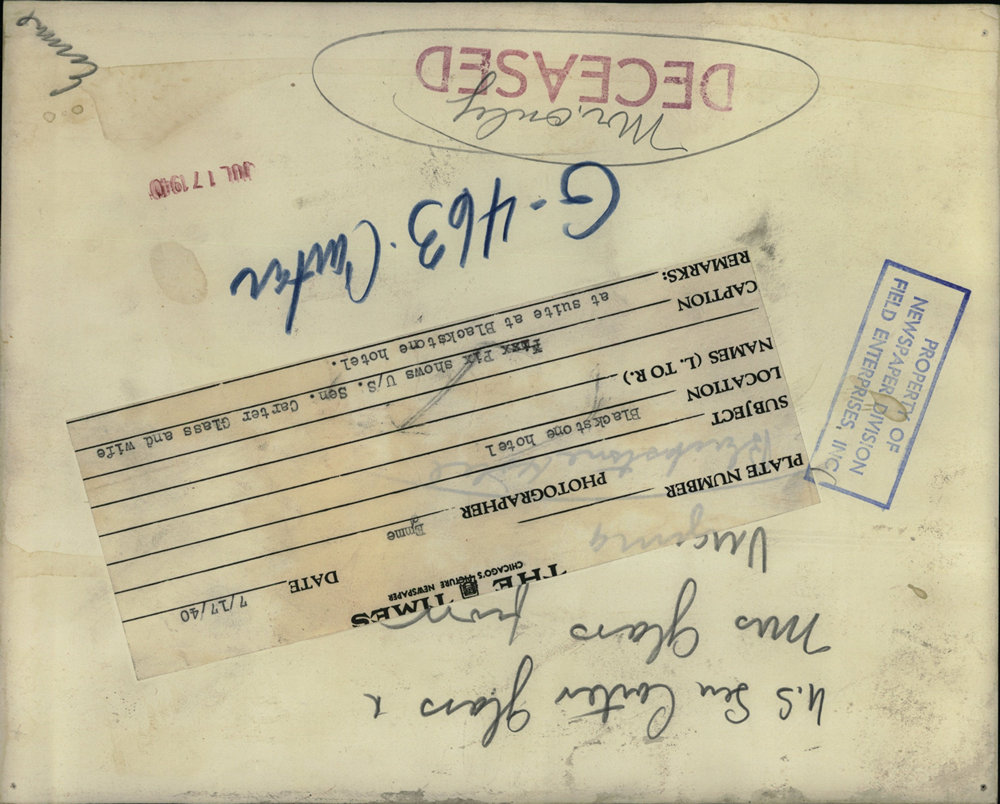 U.S Sen Carter Glass &
Mrs Glass from
Virginia
Blackstone Hotel
THE TIMES
CHICAGO'S PICTURE NEWSPAPER
DATE 7/17/40
PLATE NUMBER PHOTOGRAPHER Emme
SUBJECT
LOCATION Blackstone hotel
NAMES (L. TO R.)
CAPTION Pix shows U/S. Sen. Carter Glass and wife
REMARKS: at suite at Blackstone hotel.
PROPERTY OF
NEWSPAPER DIVISION
FIELD ENTERPRISES, INC.
G-463. Carter
JUL 17 1940
DECEASED
Mr. only
Emme